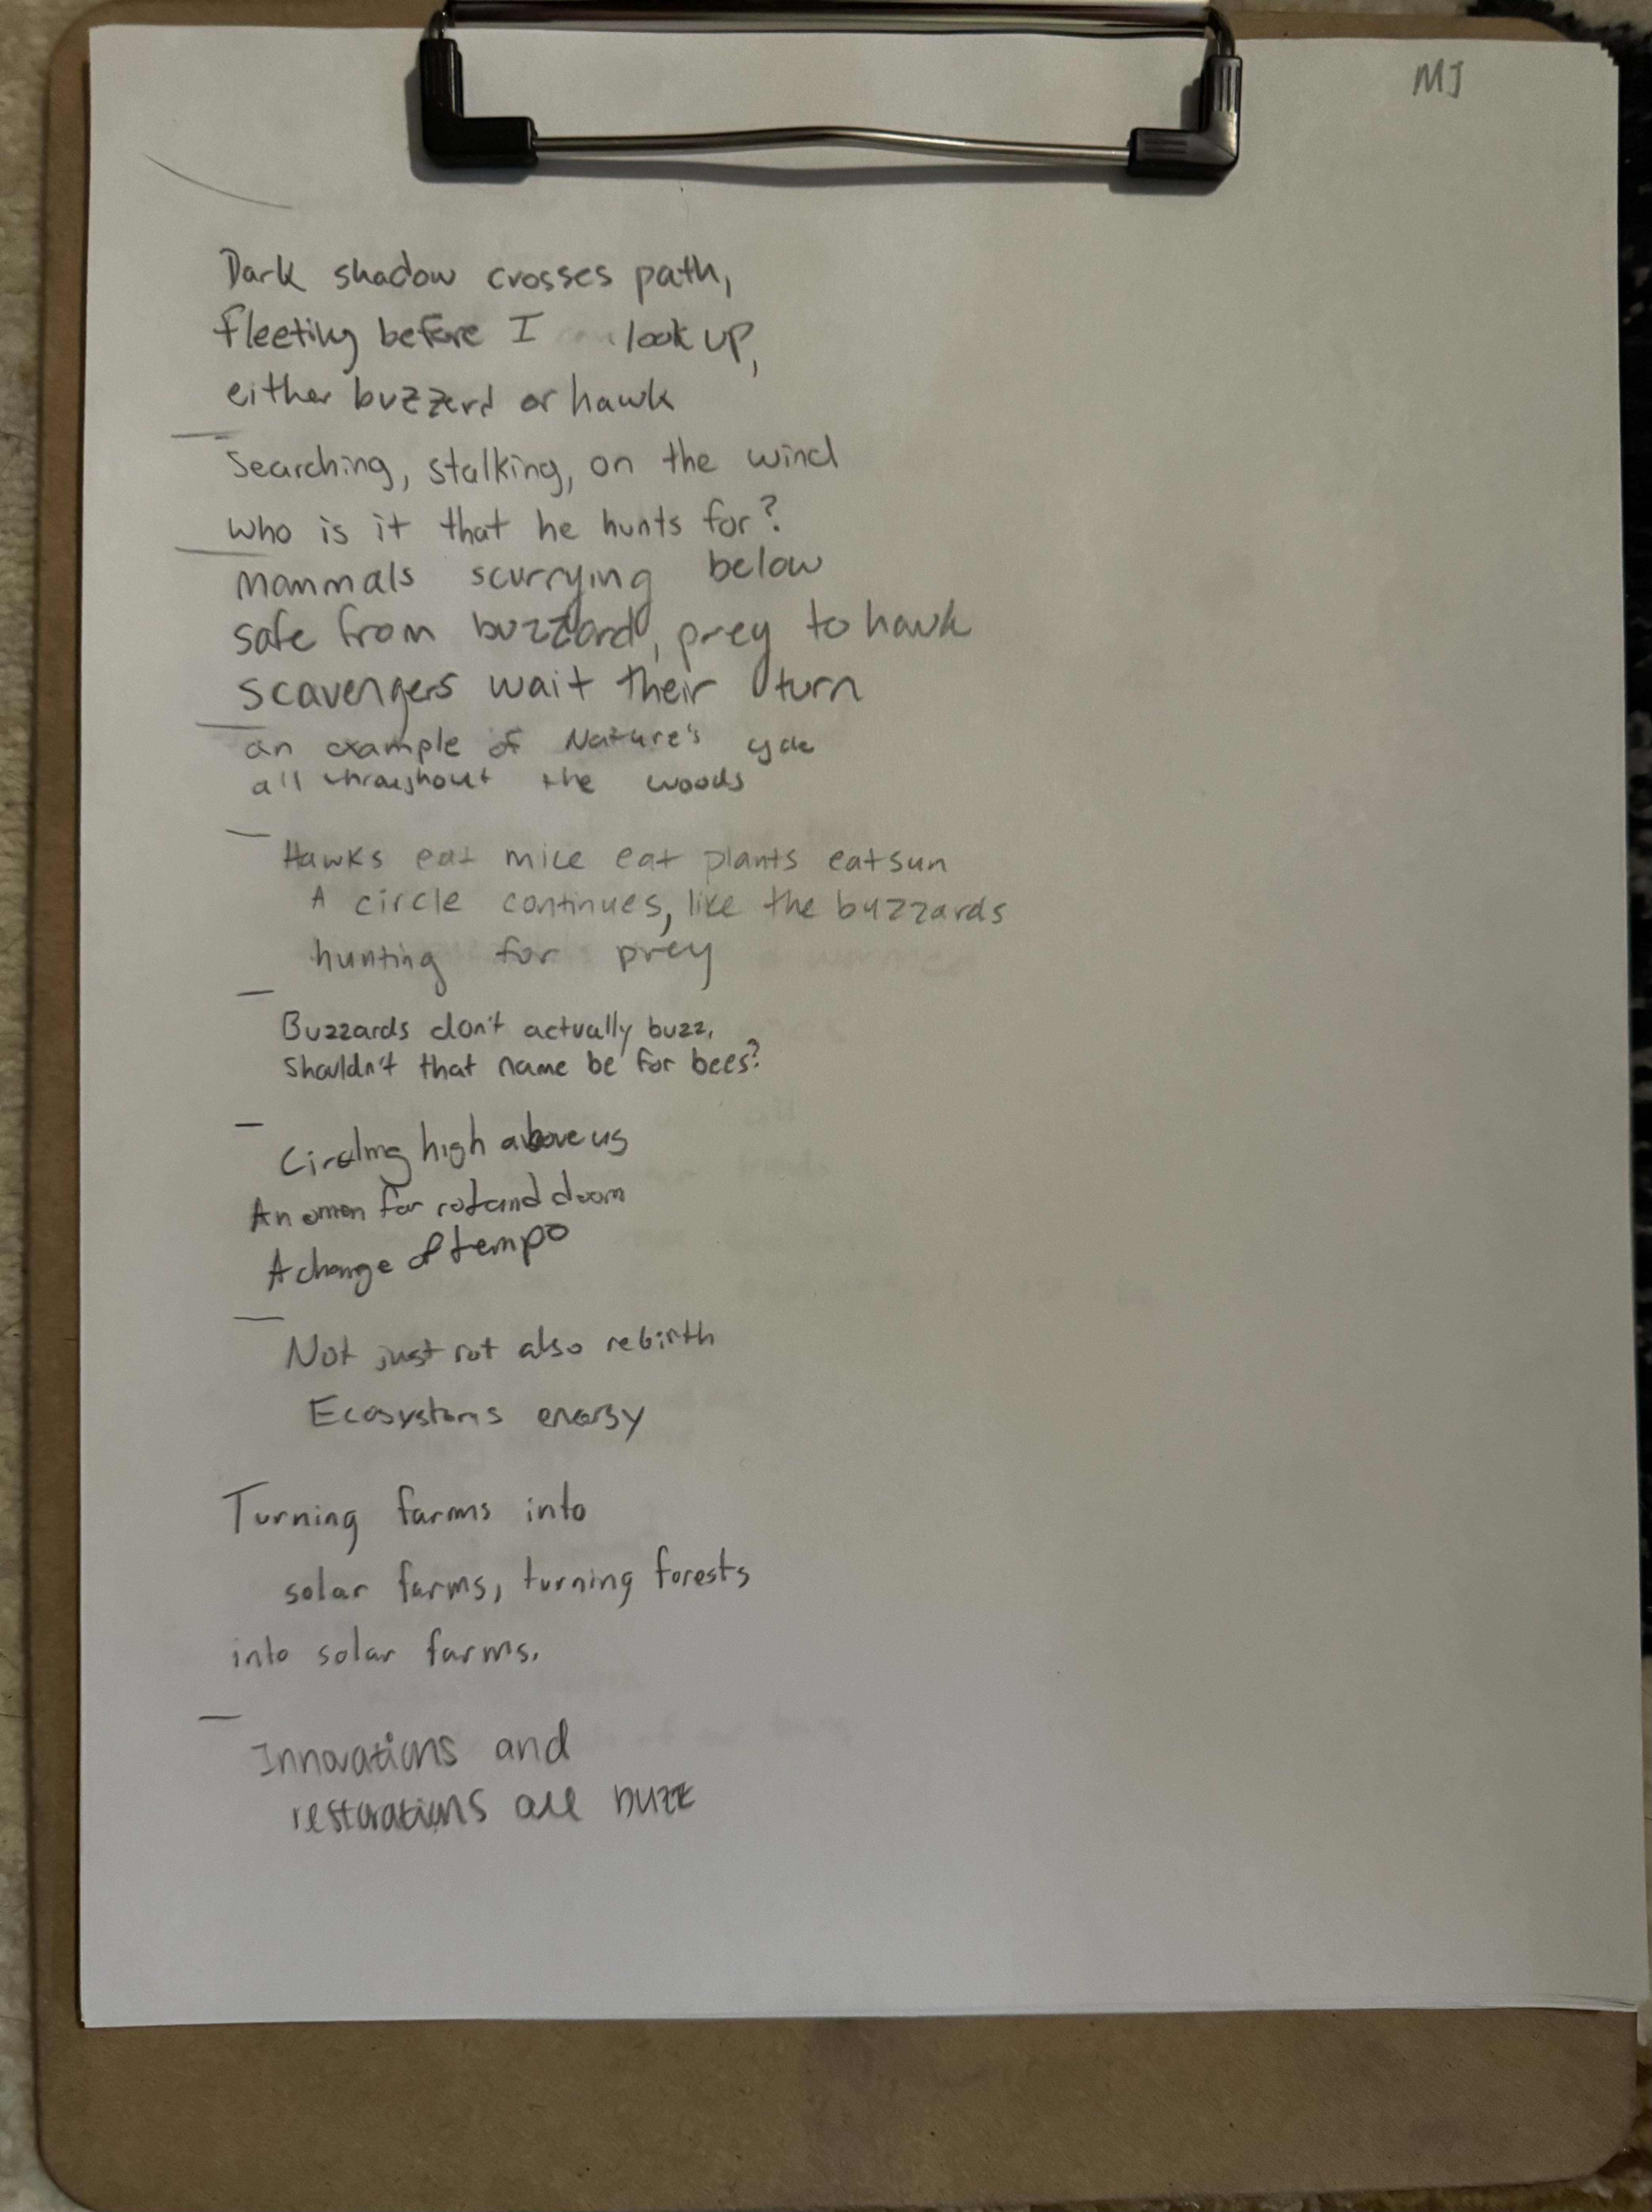 MJ
Dark shadow crosses path,
fleeting before I look up,
either buzzerd or hawk
Searching, stalking, on the wind
who is it that he hunts for?
mammals scurrying below
safe from buzzard, prey to hawk
scavengers wait their turn
an example of Nature's cycle
all throughout the woods
Hawks eat mice eat plants eat sun
A circle continues, like the buzzards
hunting for prey
Buzzards don't actually buzz,
Shouldn't that name be for bees?
Circling high above us
An omen for rot and doom
A change of tempo
Not just rot also rebirth
Ecosystems energy
Turning farms into
solar farms, turning forests
into solar farms.
Innovations and
restorations are buzz